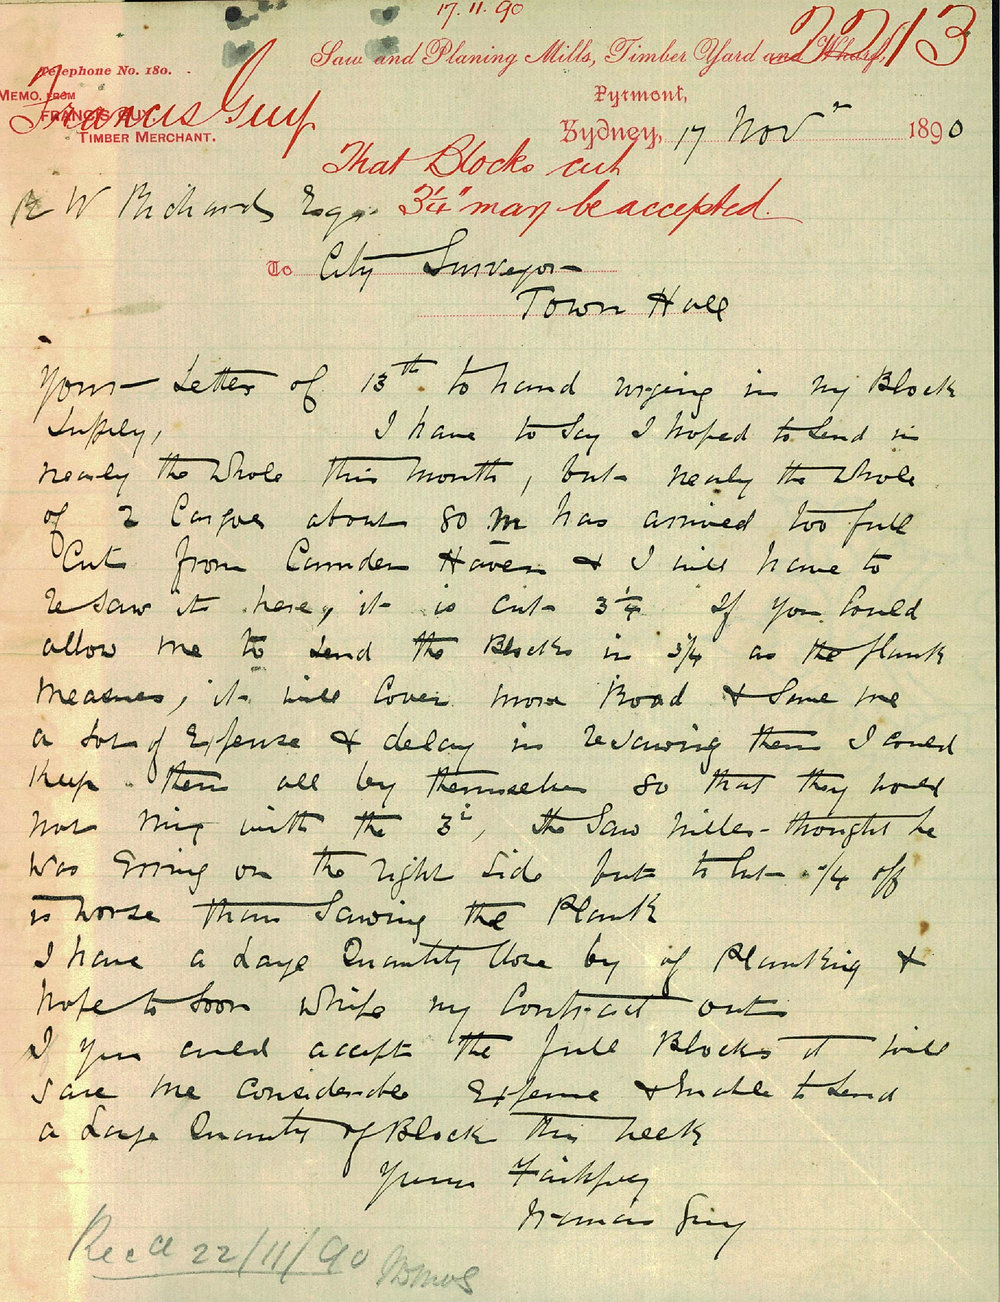 17.11.90
2213
Saw and Planing Mills, Timber Yard and Wharf,
Telephone No. 180.
Pyrmont,
MEMO. FROM
FRANCIS GUY,
Francis Guy
TIMBER MERCHANT.
Sydney, 17 Novr 1890
That Blocks cut
3¼" may be accepted.
R W Richards Esqr
To City Surveyor
Town Hall
Yours Letter of 13th to hand urging in my Block
Supply, I have to Say I hoped to Send in
nearly the whole this month, but nearly the whole
of 2 Cargoes about 80 m has arrived too full
Cut from Camden Haven & I will have to
resaw it here, it is cut 3¼ If you Could
allow me to Send the Blocks in 3¼ as the plank
measures, it will Cover more Road & Save me
a lot of Expense & delay in resawing them I could
Keep them all by themselves so that they would
not mix with the 3in, the Saw miller thought he
was Erring on the right Side but to Cut ¼ off
is worse than Sawing the Plank
I have a Large Quantity Close by of Planking &
hope to Soon whip my Contract out
If you could accept the full Blocks it will
save me considerable Expense & Enable to Send
a Large Quantity of Block this week
Yours Faithfully
Francis Guy
Recd 22/11/90